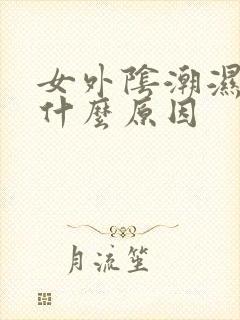 女外陰潮濕
什麼原因
月流笙